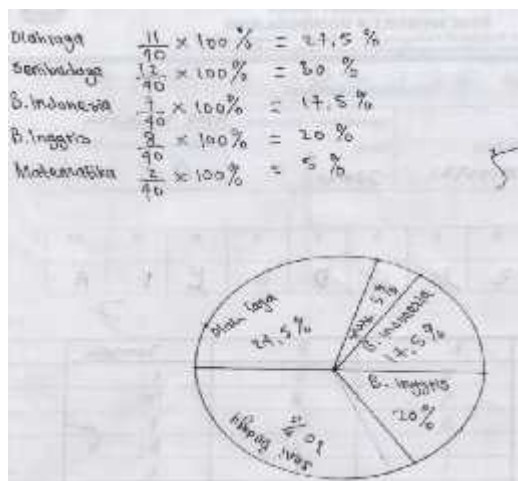 Olahraga 11/40 × 100 % = 27,5 %
Senibudaya 12/40 × 100% = 30 %
B. Indonesia 7/40 × 100% = 17,5 %
B. Inggris 8/40 × 100% = 20 %
Matematika 2/40 × 100% = 5 %
Olah raga
27,5 %
5%
B. indonesia
17,5%
B. inggris
20%
Seni Budaya
30 %